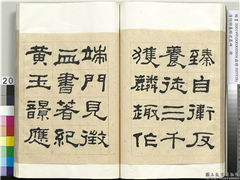 臻自衛反
養徒三千
獲麟趣作
端門見徵
血書著紀
黃玉韻應
20